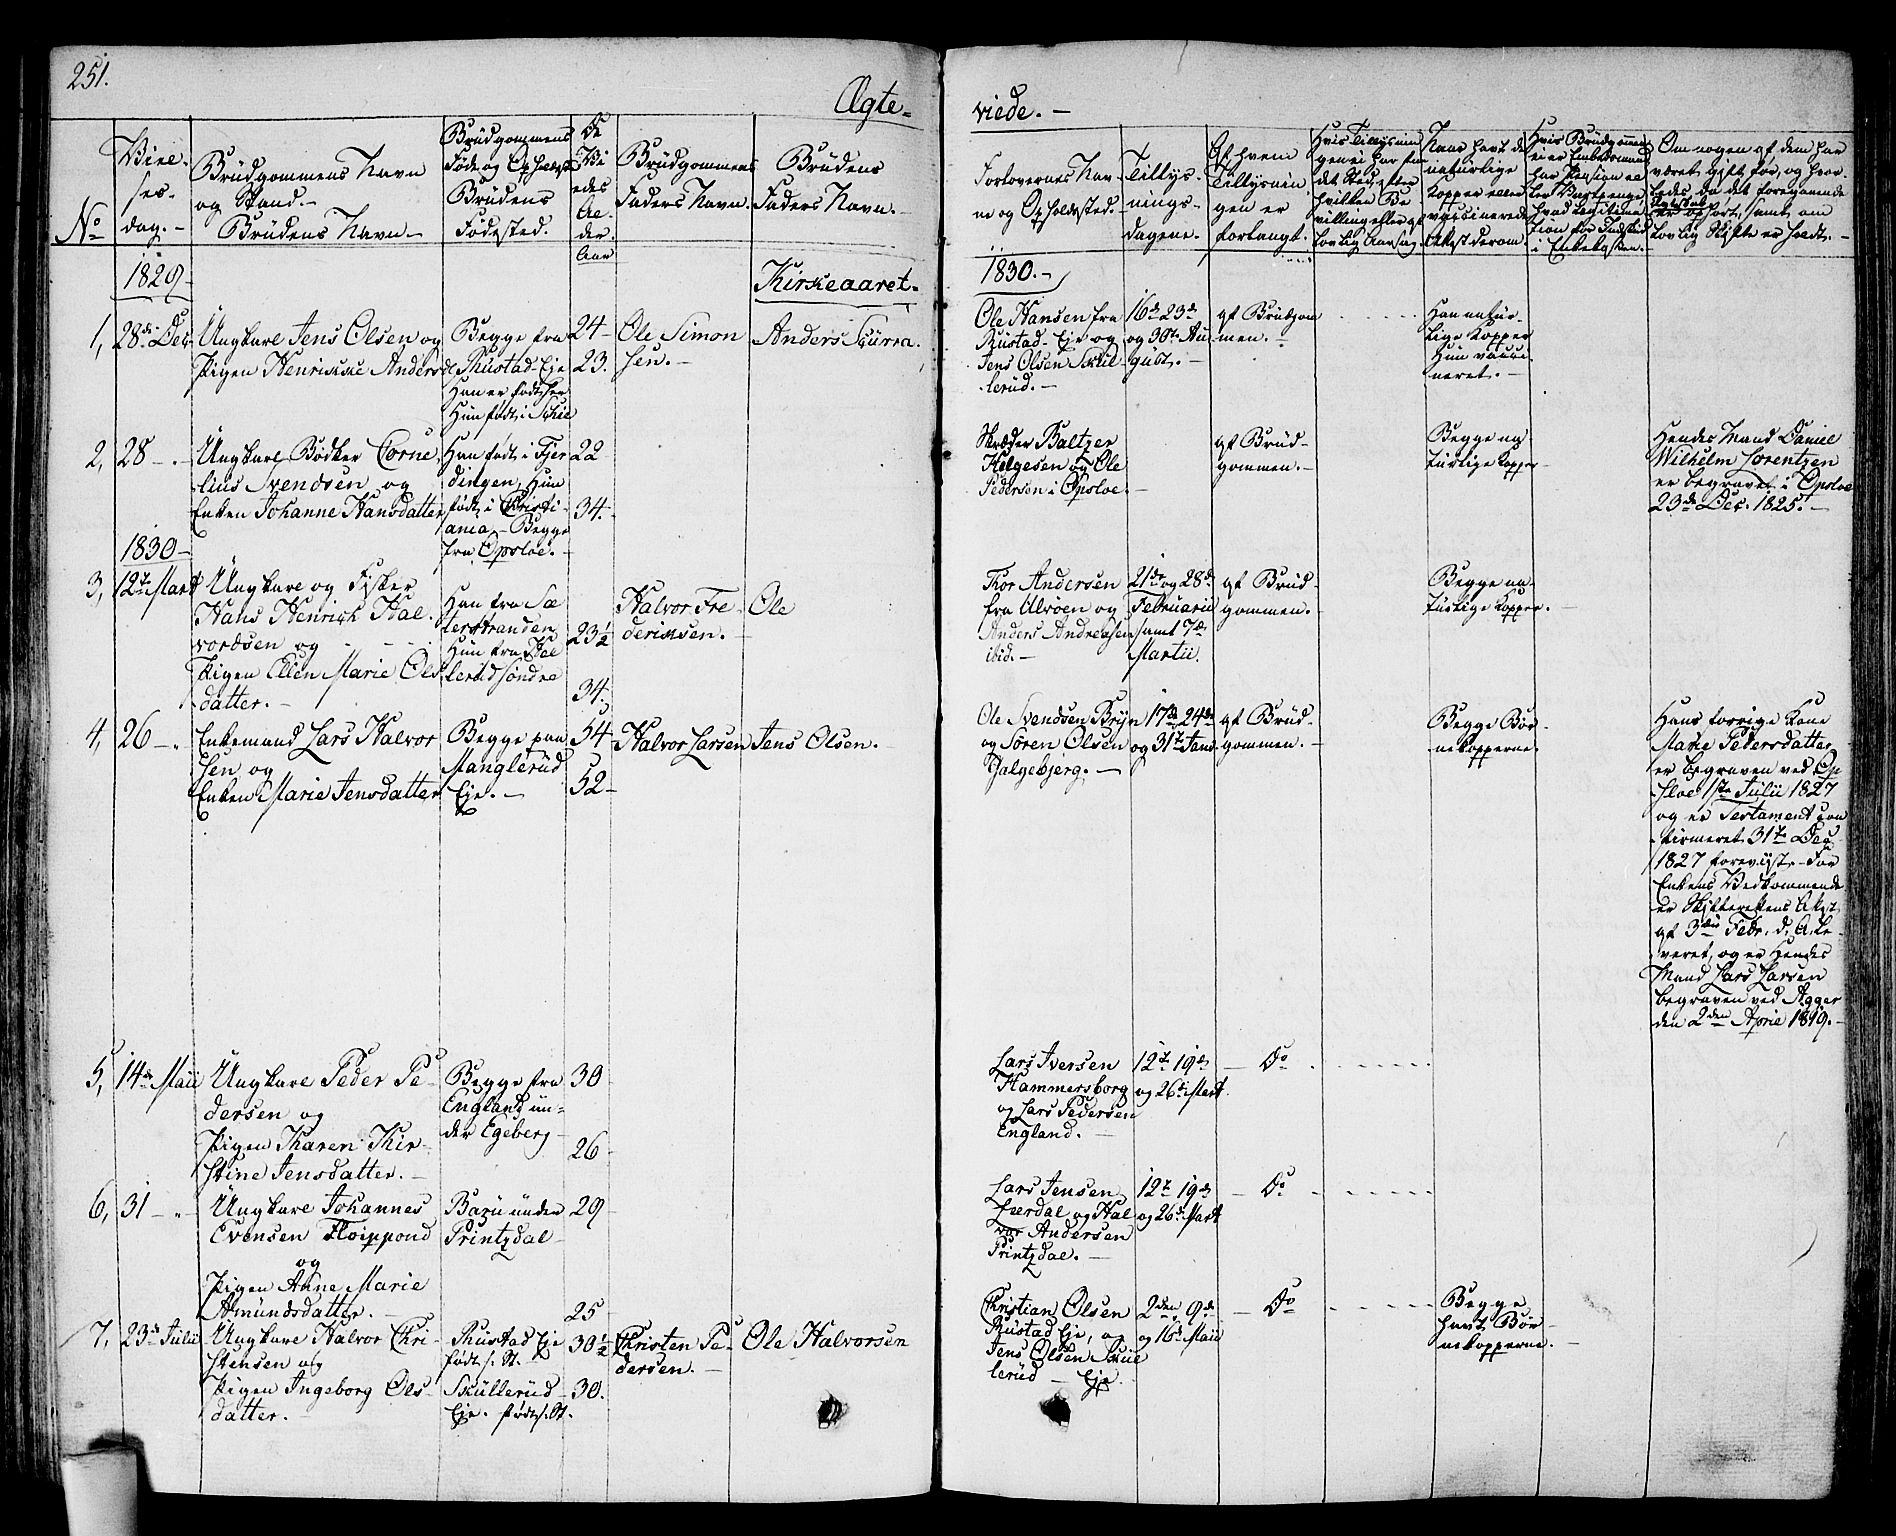 251.
Ægte-
viede.-
No
Viel-
ses-
dag.-
Brudgommens Navn
og Stand.-
Brudens Navn.-
Brudgommens
Føde og Opholdsst.
Brudens
Fødested.
De
Vi
edes
Al-
der.
Aar
Brudgommens
Faders Navn.
Brudens
Faders Navn.-
Forlovernes Nav-
ne og Opholdsted.-
Tillys-
nings-
dagene.
Af hvem
Tillysnin
gen er
forlangt.
Om nogen af dem har
været gift før, og hvor-
1829-
Kirkeaaret-
1830.-
1,
28de Dec.
Ungkarl Jens Olsen og
Pigen Henrikke Anders d.
Begge fra
Rustad-Eje
Han er født her
Hun født i Skie
24-
23.
Ole Simon
sen.-
Anders Skurra.
Ole Hansen fra
Rustad-Eje og
Jens Olsen Skul-
lerud.-
16de 23de
og 30te Au
gust.-
af Brudgom
men.-
Han natur-
lige Kopper
Hun vacci-
neret.-
2,
28-"-
Ungkarl Bødker Corne
lius Svendsen og
Enken Johanne Hansdatter
Han født i Fjer
dingen, Hun
født i Christi-
ania-Begge
fra Opsloe.-
22-
34.-
Skræder Baltzer
Helgesen og Ole
Pedersen i Opsloe.-
af Brud-
gommen.-
Begge na
turlige Kopper
Hendes Mand Daniel
Wilhelm Lorentzen
er begravet i Opsloe
23de Dec. 1825.-
1830-
3,
12te Mart
Ungkarl og Fisker
Hans Henrich Hal-
vordsen og
Pigen Ellen Marie Ols
datter.-
Han fra Sæ
terstranden
Hun fra Hal
lerud søndre
23½
34.
Halvor Fre-
deriksen.-
Ole
Thor Andersen
fra Ulvøen og
Anders Andreasen
ibid.-
21de og 28de
Februarii
samt 7de
Martii.
af Brud-
gommen.-
Begge na-
turlige Kopper.-
4,
26-"
Enkemand Lars Halvor
sen og
Enken Marie Jensdatter
Begge paa
Manglerud
Eje.-
54-
52-
Halvor Larsen
Jens Olsen.-
Ole Svendsen Bryn
og Søren Olsen
Galgebjerg.-
17de 24de
og 31te Janr
af Brud-
gommen.-
Begge Bør-
nekopperne.
Hans forrige Kone
Marie Pedersdatter
er begraven ved Op
sloe 1ste Julii 1827
og er Testament con
firmeret 31te Dec
1827 foreviist.-For
Enkens Vedkommende
er Skifterettens Att.
af 3die Febr. d. A. le-
veret, og er Hendes
Mand Lars Larsen
begraven ved Agger
den 2den April 1819.-
5,
14de Maii
Ungkarl Peder Pe-
dersen og
Pigen Karen Kir-
stine Jensdatter.-
Begge fra
England un-
der Egeberg-
30
26-
Lars Iversen
Hammersborg
og Lars Pedersen
England.-
12te 19de
og 26de Mart
- Do
6,
31-"-
Ungkarl Johannes
Evensen Floippond
og
Pigen Anne Marie
Amundsdatter.-
Baru under
Printzdal-
29
25
Lars Jensen
Leerdal og Hal
vor Andersen
Printzdal.-
12te 19de
og 26de Mart
- Do
7,
23de Julii
Ungkarl Halvor Chri-
stensen og
Pigen Ingeborg Ols-
datter.-
Rustad Eje
født s. St.-
Skullerud-
Eje. født s. St.
30½
30.
Christen Pe-
dersen.-
Ole Halvorsen
Christian Olsen
Rustad Eje, og
Jens Olsen Skul
lerud - Eje.
2den 9de
og 16de Maii
- Do
Begge
havt Bør-
nekopperne.-